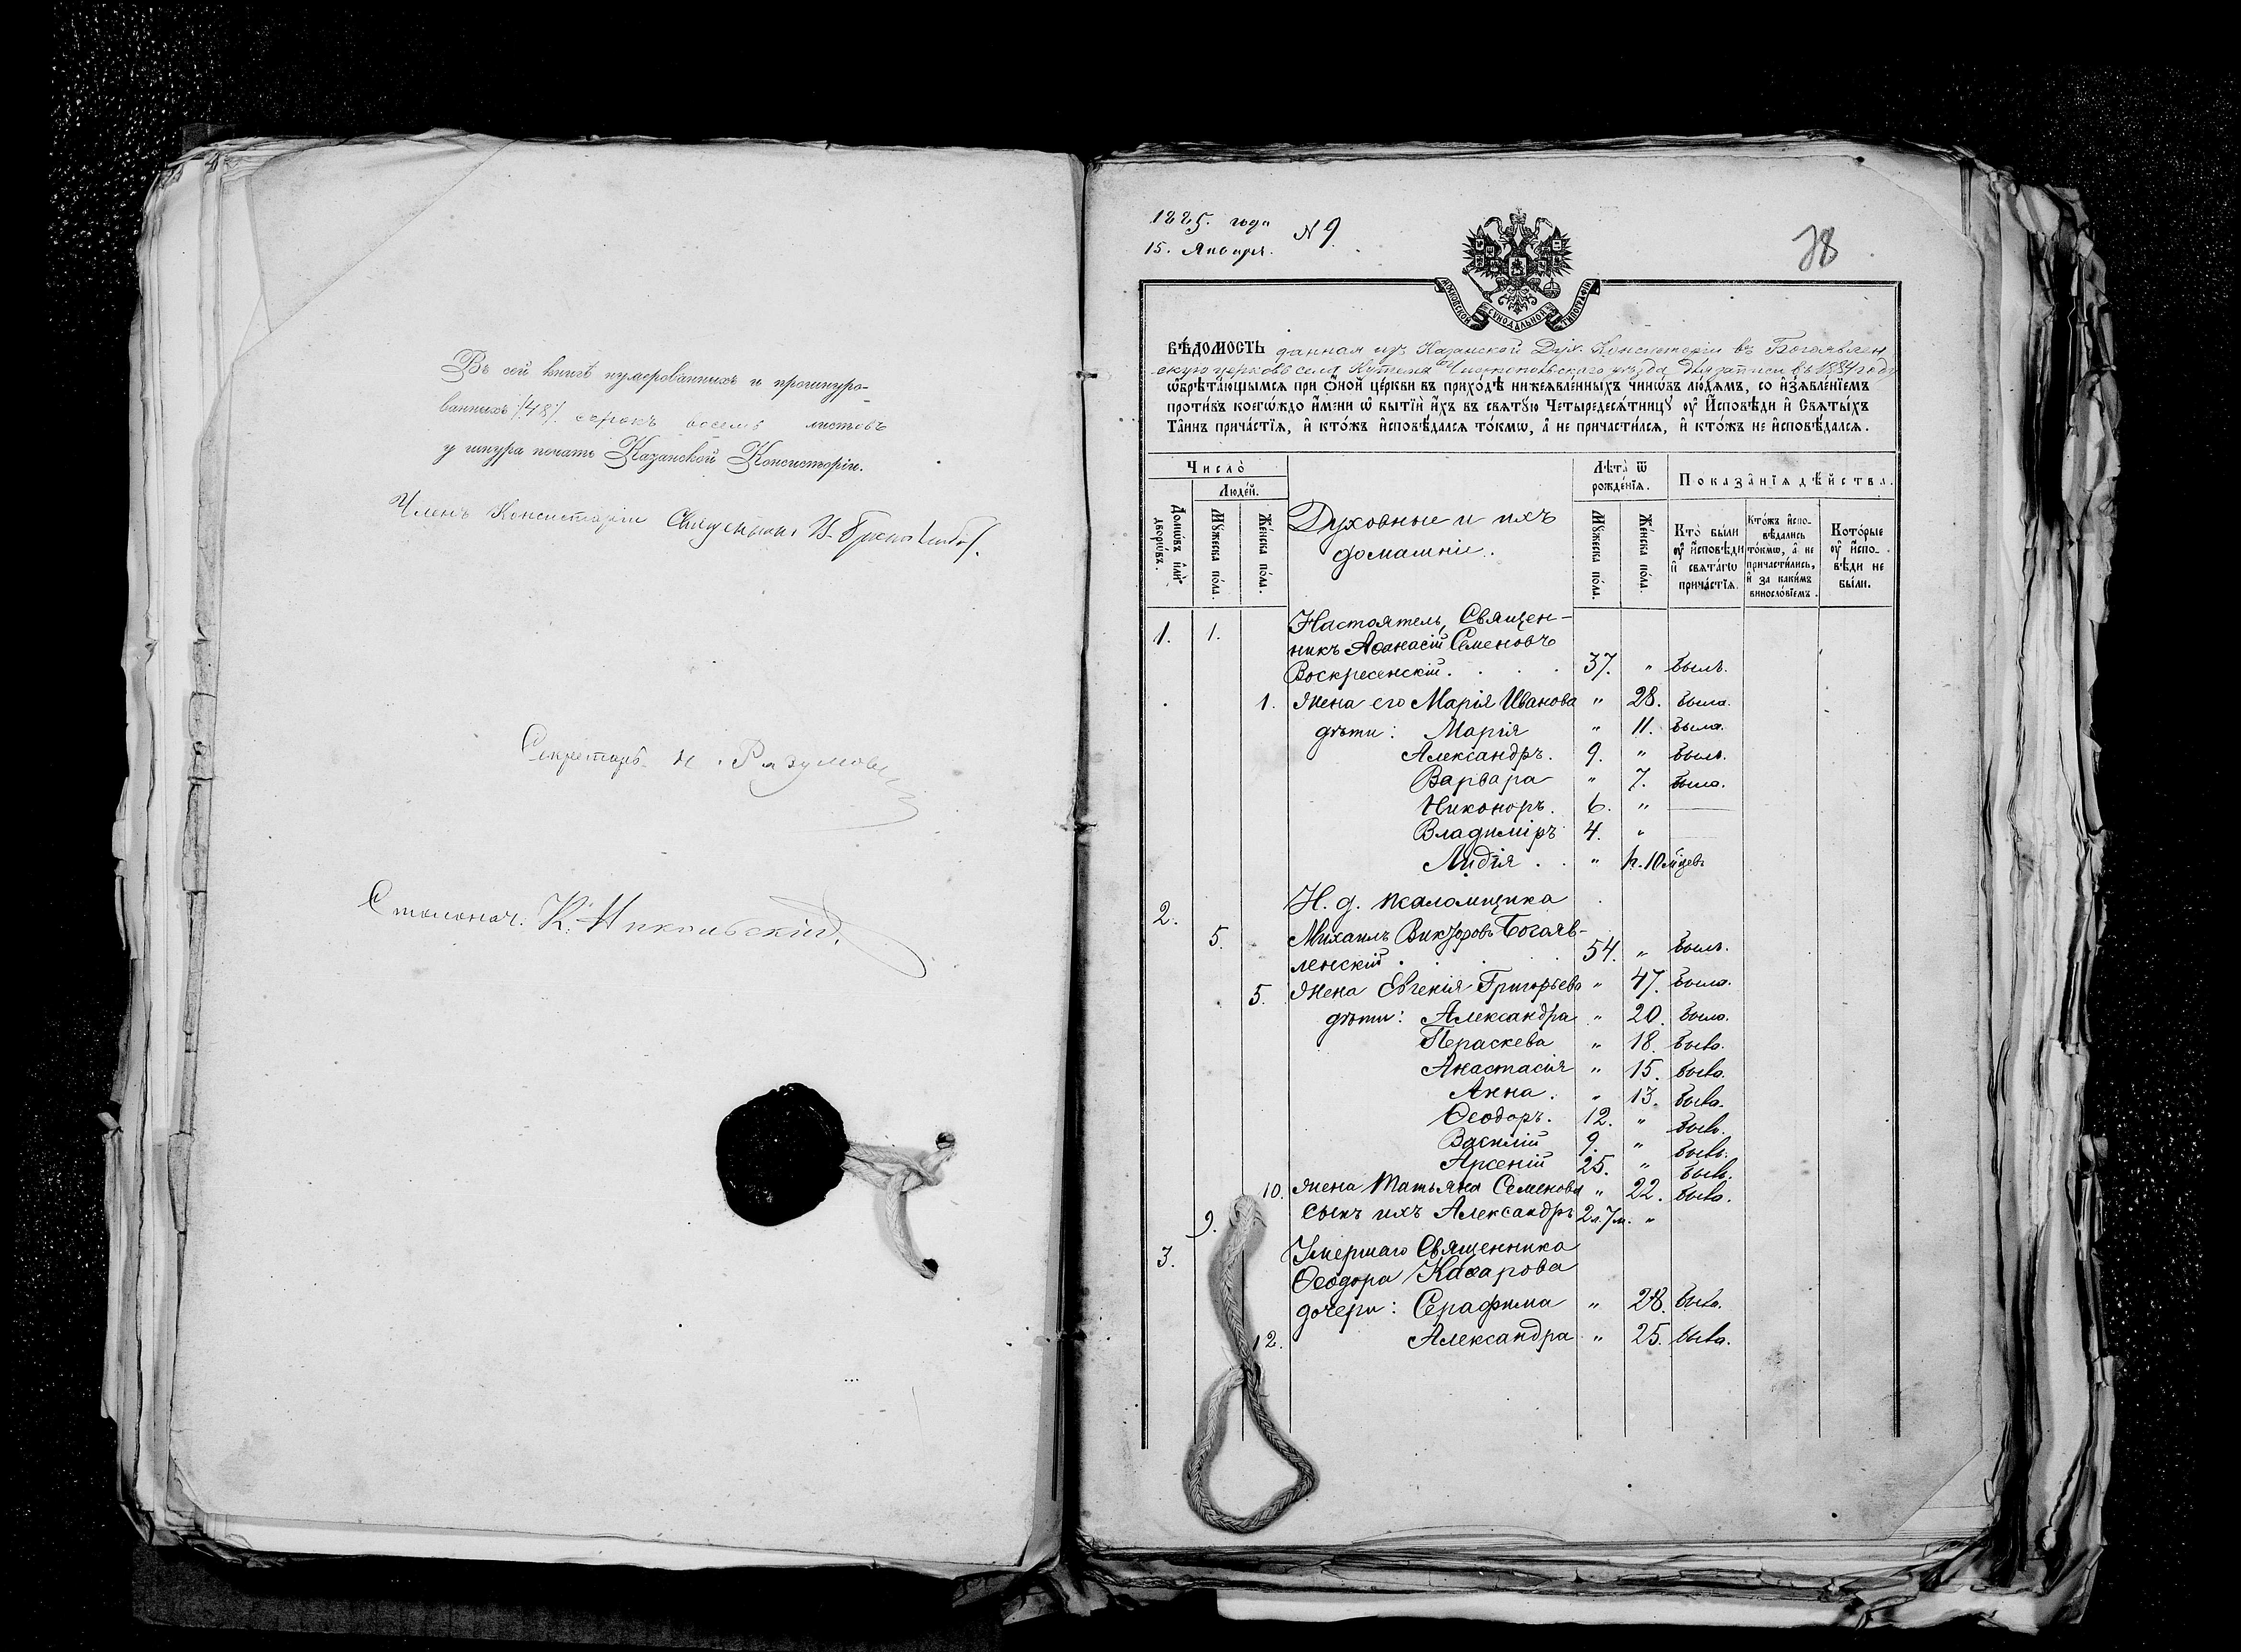 Въ сей книгѣ нумерованныхъ и прошнуро-
ванныхъ /:48:/ сорокъ восемь листовъ
у шнура печать Казанской Консисторіи.
Членъ Консисторіи Священникъ
Секретарь Н. Разумовъ
Столонач: К. Никольскій.
1885. года № 9
15. Января.
38
МОСКОВСКОЙ СУНОДАЛЬНОЙ ТИПОГРАФІИ
ВѢ́ДОМОСТЬ данная изъ Казанской Дух. Консисторіи въ Богоявлен
скую церковь села Кутема Чистопольскаго уѣзда для записи въ 1884 году
ѡ҆брѣта́ющымсѧ при ѻ҆́ной це́ркви въ прихо́дѣ нижеѧвле́нныхъ чинѡ́въ лю́демъ, со и҆з̾ѧвле́нїемъ
проти́въ коегѡ́ждо и҆́мени ѡ҆ бытїѝ и҆́хъ въ свѧту́ю Четыредесѧ́тницу ᲂу҆ И҆́сповѣди и҆ Свѧты́хъ
Та̑инъ прича́стїѧ, и҆ кто́жъ и҆сповѣ́далсѧ то́кмѡ, а҆ не причасти́лсѧ, и҆ кто́жъ не и҆сповѣ́далсѧ.
Число̀
Домѡ́въ и҆лѝ дворѡ́въ.
Люде́й.
Мꙋ́жеска по́ла.
Же́нска по́ла.
Духовные и ихъ
домашніе.
Лѣта̀ ѿ
рожде́нїѧ.
Мꙋ́жеска по́ла.
Же́нска по́ла.
Показа̑нїѧ дѣ́йства.
Кто̀ бы́ли
ᲂу҆ и҆́сповѣди
и҆ свѧта́гѡ
прича́стїѧ.
Кто́жъ и҆спо-
вѣ́дались
то́кмѡ, а҆ не
причасти́лись,
и҆ за каки́мъ
виносло́вїемъ.
Кото́рые
ᲂу҆ и҆́спо-
вѣди не
бы́ли.
1. 1. Настоятель, Священ-
никъ Аѳанасій Семеновъ
Воскресенскій. 37. " былъ.
1. Жена его Марія Иванова " 28. была.
дѣти: Марія " 11. была.
Александръ. 9. " былъ.
Варвара " 7. была.
Никоноръ. 6. "
Владиміръ 4. "
Лидія . . " 10 мѣсцевъ
2. Н. д. псаломщика
5. Михаилъ Викторовъ Богояв-
ленскій . 54. " былъ.
5. Жена Евгенія Григорьева " 47. была.
дѣти: Александра " 20. была.
Параскева " 18. была.
Анастасія " 15. была.
Анна. " 13. была.
Ѳеодоръ. 12. " былъ.
Василій 9. " былъ.
Арсеній 25. " былъ.
10. Жена Татьяна Семенова " 22. была.
9. сынъ ихъ Александръ 2л.7м. "
3. Умершаго Священника
Ѳеодора Казарова
дочери: Серафима " 28. была.
12. Александра " 25. была.